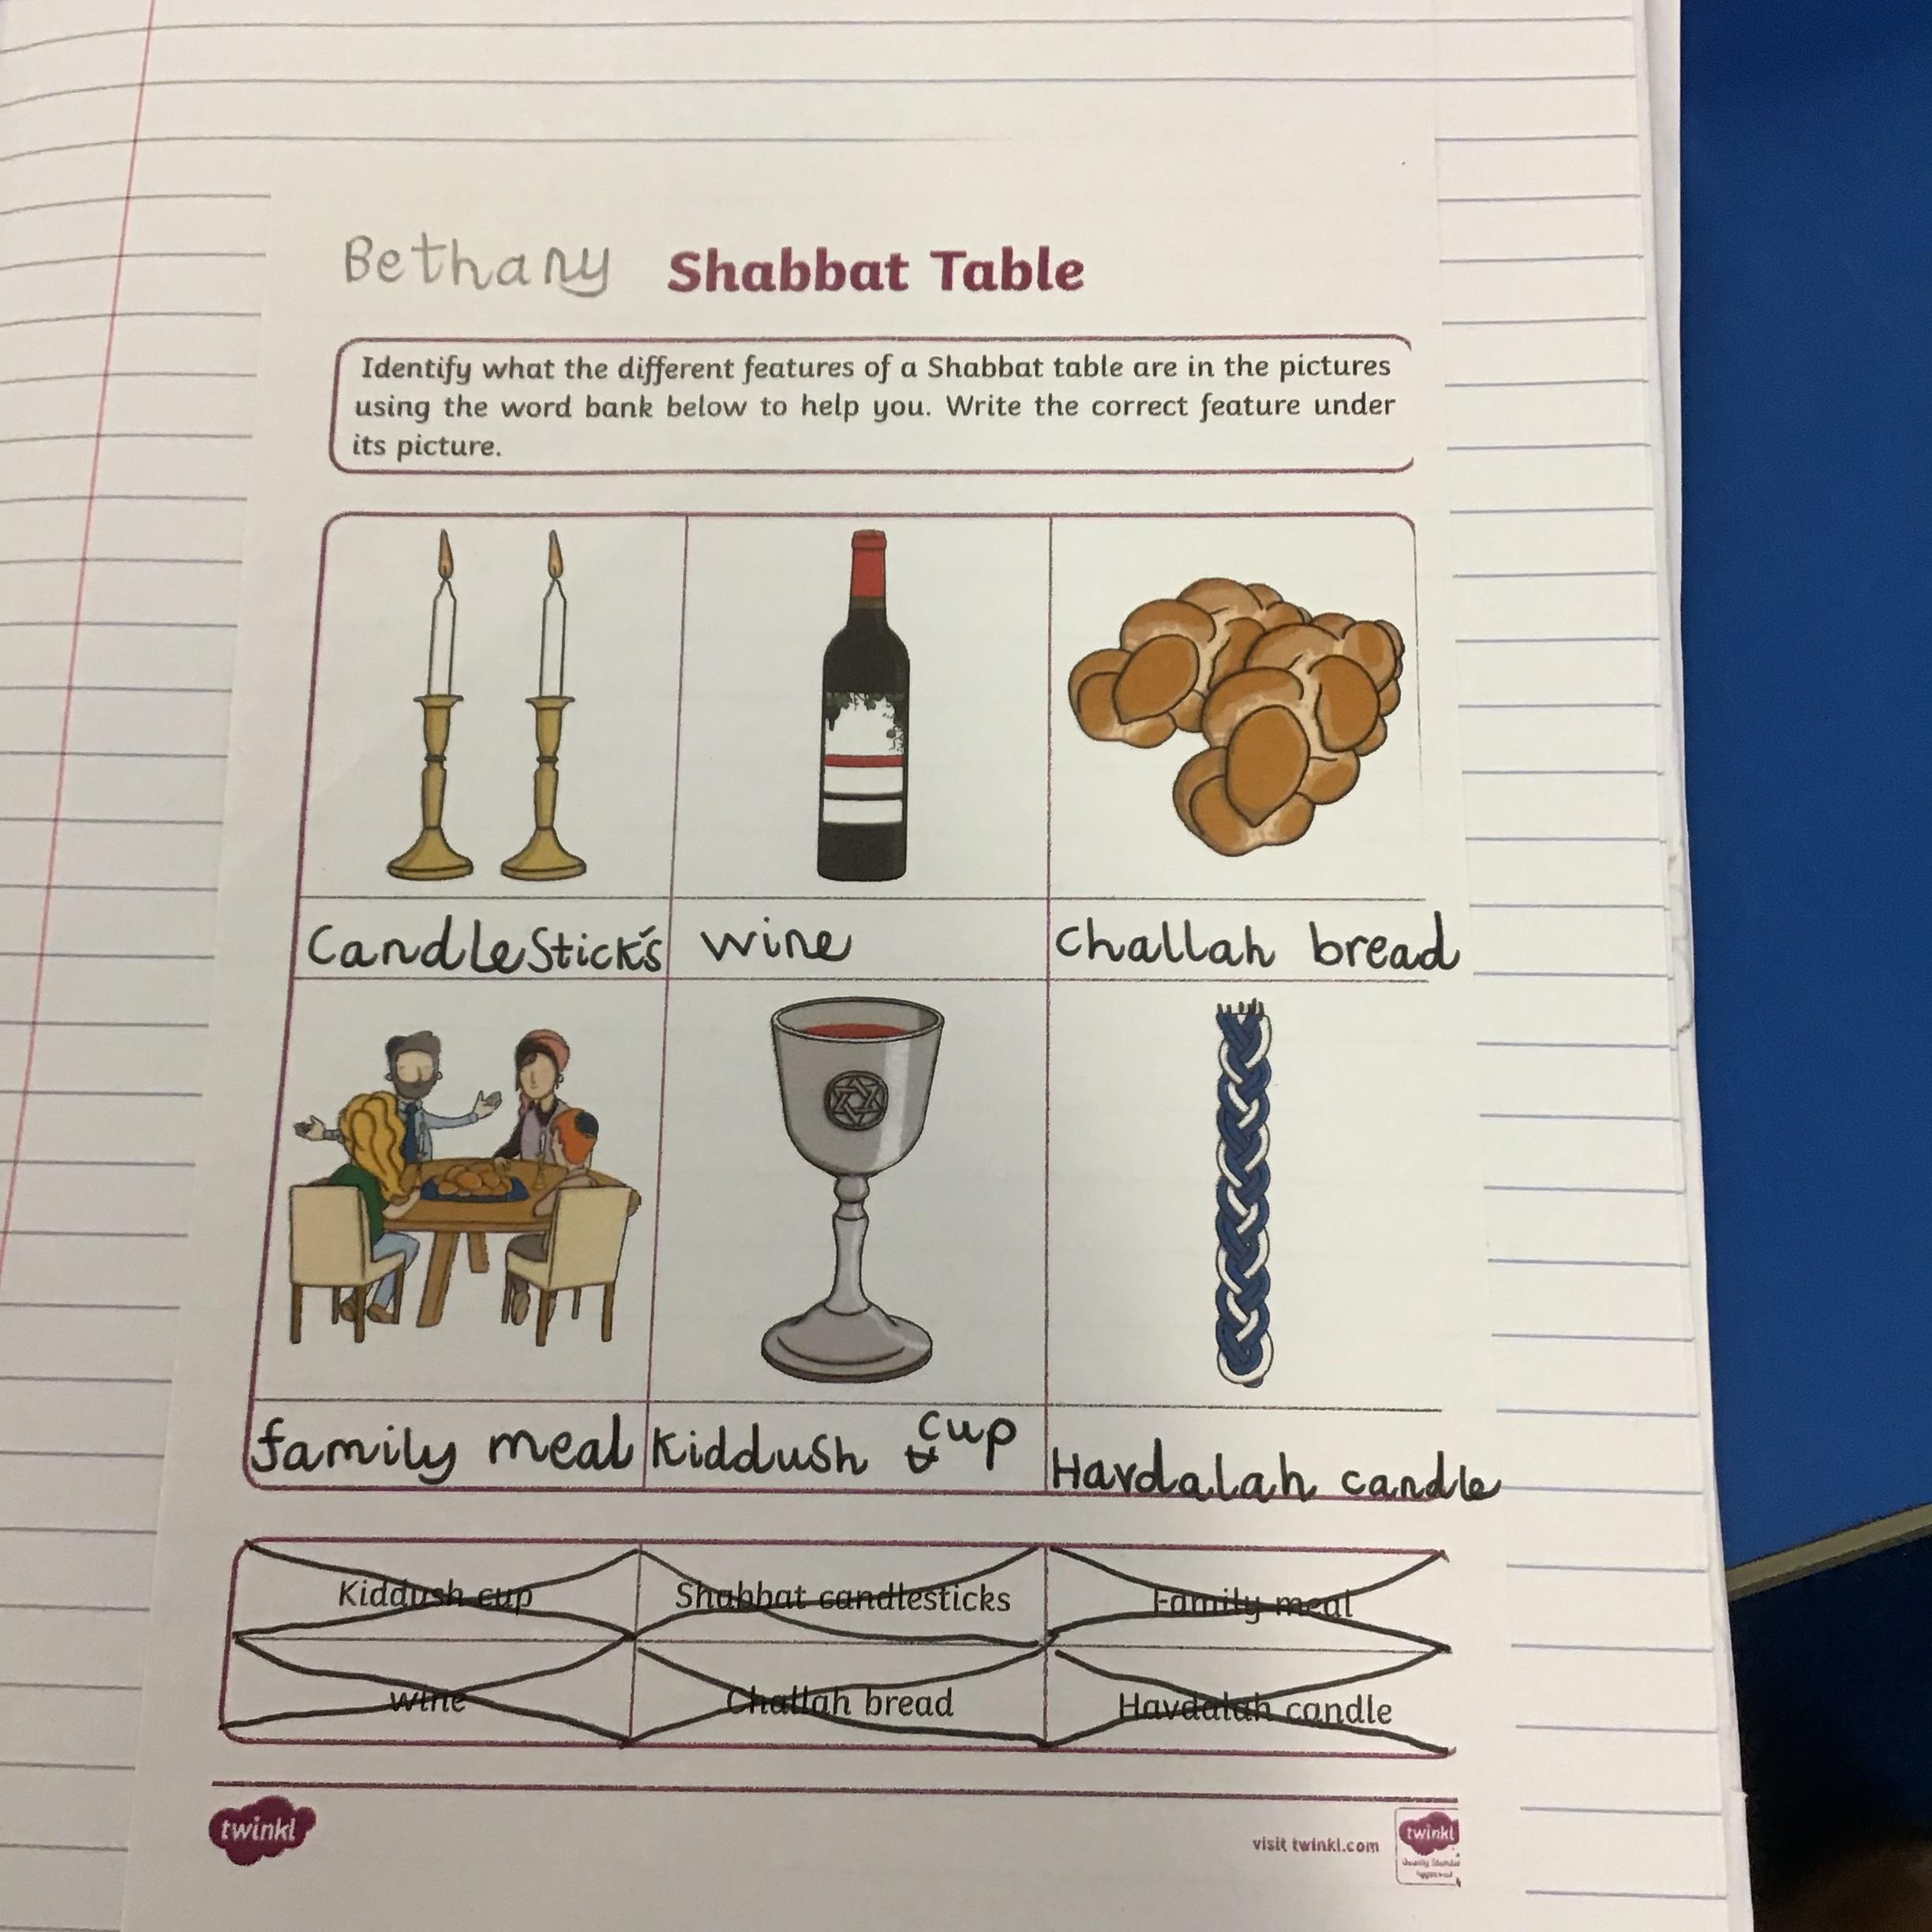 Bethany Shabbat Table
Identify what the different features of a Shabbat table are in the pictures
using the word bank below to help you. Write the correct feature under
its picture.
Candlestick's wine challah bread
family meal Kiddush cup Havdalah candle
Kiddush cup Shabbat candlesticks Family meal
Wine Challah bread Havdalah candle
twinkl visit twinkl.com twinkl
Quality Standard
Approved